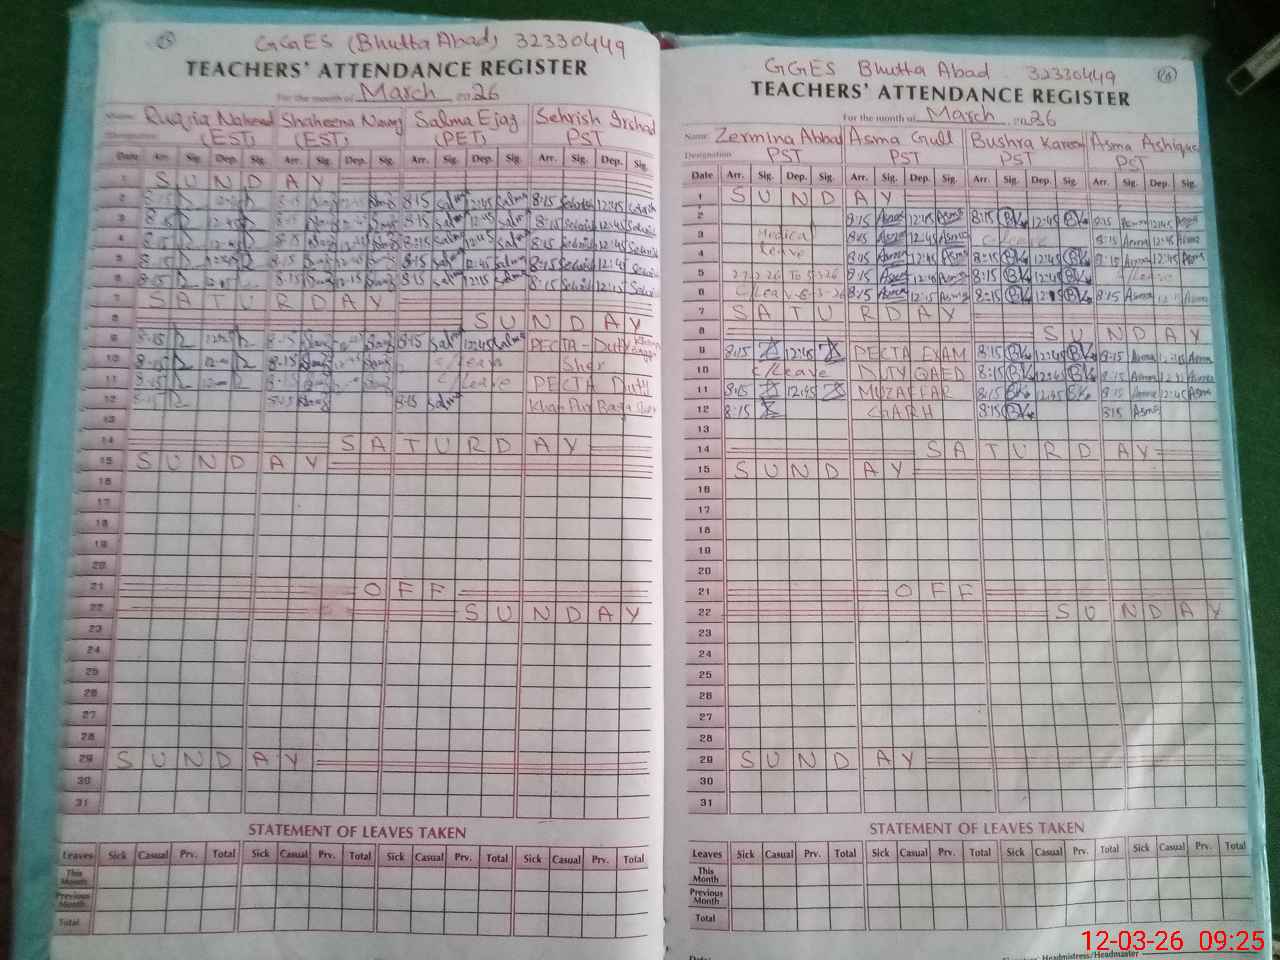 GGES (Bhutta Abad) 32330449
TEACHERS' ATTENDANCE REGISTER
For the month of March 2026
Ruqria Naheed Shaheena Salma Ejaz Sehrish Irshad
Designation (EST) (EST) (PET) PST
Date Arr. Sig. Dep. Sig. Arr. Sig. Dep. Sig. Arr. Sig. Dep. Sig. Arr. Sig. Dep. Sig.
1 S U N D A Y
2 8:15 8:15 8:15 Salma 12:45 Salma 8:15 Sehrish 12:45 Sehrish
3 8:15 12:45 8:15 8:15 Salma 12:45 Salma 8:15 Sehrish 12:45 Sehrish
4 8:15 12:45 8:15 8:15 Salma 12:45 Salma 8:15 Sehrish 12:45 Sehrish
5 8:15 12:45 8:15 8:15 Salma 12:45 Salma 8:15 Sehrish 12:45 Sehrish
6 8:15 8:15 12:15 8:15 Salma 12:15 Salma 8:15 Sehrish 12:15 Sehrish
7 S A T U R D A Y
8 S U N D A Y
9 8:15 8:15 8:15 Salma 12:45 Salma PECTA - Duty
10 8:15 8:15 c/leave Sher
11 8:15 8:15 c/leave PECTA Duty
12 8:15 8:15 8:15 Salma Khan Pur Baga Sher
13
14 S A T U R D A Y
15 S U N D A Y
16
17
18
19
20
21 O F F
22 S U N D A Y
23
24
25
26
27
28
29 S U N D A Y
30
31
STATEMENT OF LEAVES TAKEN
Leaves Sick Casual Prv. Total Sick Casual Prv. Total Sick Casual Prv. Total Sick Casual Prv. Total
This Month
Previous Month
Total
GGES Bhutta Abad 32330449
TEACHERS' ATTENDANCE REGISTER
For the month of March 2026
Name: Zermina Abbad Asma Gull Bushra Kareem Asma Ashiq
Designation PST PST PST PST
Date Arr. Sig. Dep. Sig. Arr. Sig. Dep. Sig. Arr. Sig. Dep. Sig. Arr. Sig. Dep. Sig.
1 S U N D A Y
2 8:15 Asma 12:45 Asma 8:15 12:45 8:15 Asma 12:45 Asma
3 Medical 8:15 Asma 12:45 Asma c/leave 8:15 Asma 12:45 Asma
4 leave 8:15 Asma 12:45 Asma 8:15 12:45 8:15 Asma 12:45 Asma
5 To 5-3-26 8:15 Asma 12:45 Asma 8:15 12:45 c/leave
6 c/Leave 6-3-26 8:15 Asma 12:15 Asma 8:15 12:15 8:15 Asma Asma
7 S A T U R D A Y
8 S U N D A Y
9 8:15 12:45 PECTA EXAM 8:15 12:45 8:15 Asma 12:45 Asma
10 c/Leave DUTY QAED 8:15 12:45 8:15 Asma 12:45 Asma
11 8:15 12:45 MUZAFFAR 8:15 12:45 8:15 Asma 12:45 Asma
12 8:15 GARH 8:15 8:15 Asma
13
14 S A T U R D A Y
15 S U N D A Y
16
17
18
19
20
21 O F F
22 S U N D A Y
23
24
25
26
27
28
29 S U N D A Y
30
31
STATEMENT OF LEAVES TAKEN
Leaves Sick Casual Prv. Total Sick Casual Prv. Total Sick Casual Prv. Total Sick Casual Prv. Total
This Month
Previous Month
Total
Headmistress/Headmaster
12-03-26 09:25